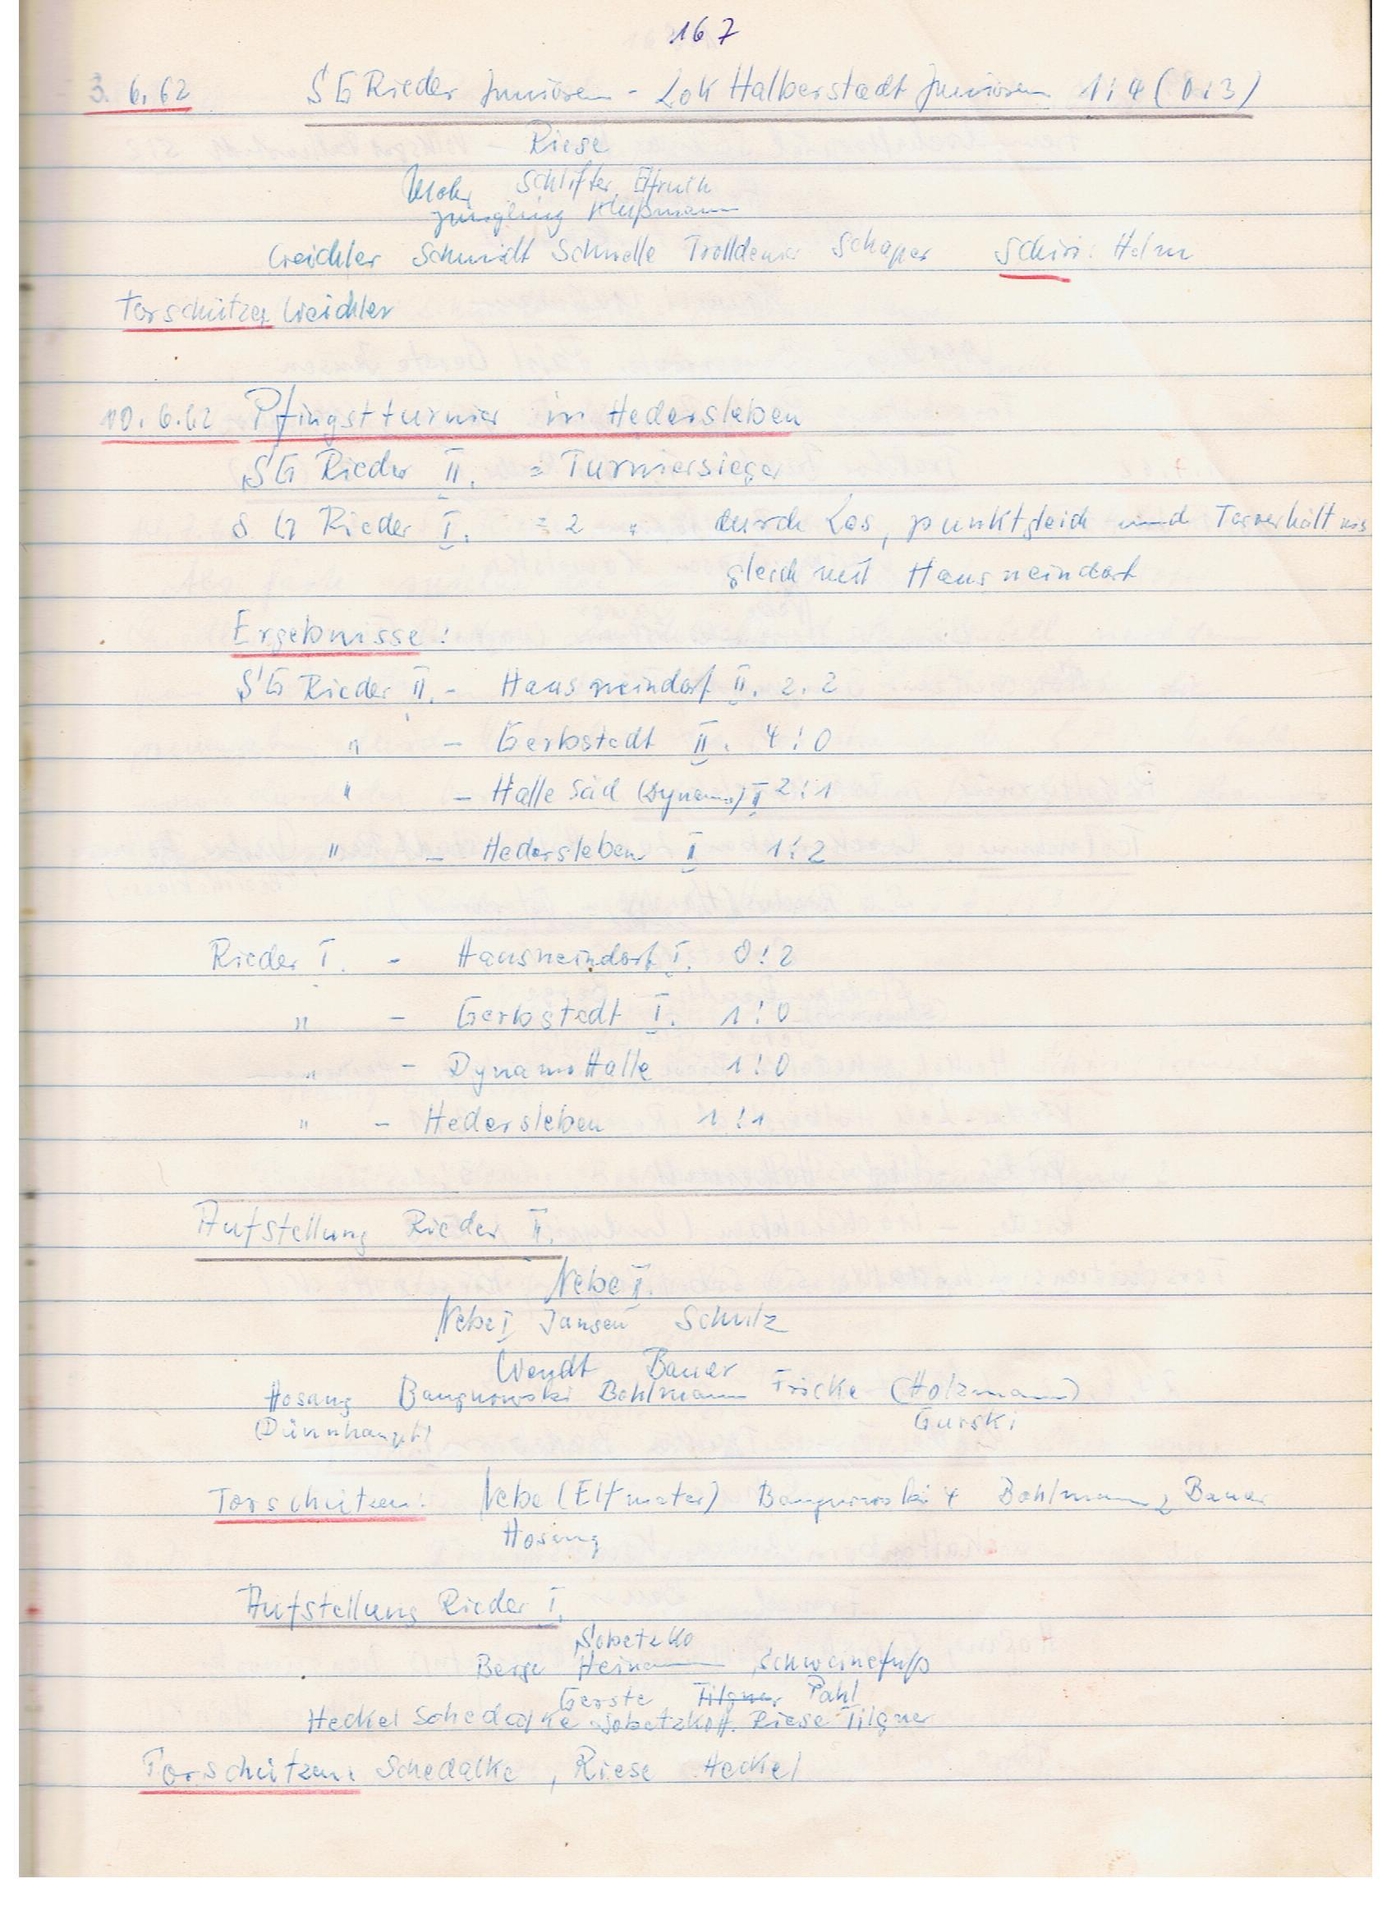 167
3. 6. 62 SG Rieder Junioren - Lok Halberstadt Junioren 1:4 (0:3)
Riese
Mohr Schlifter
Jüngling Hußmann
Weichler Schmidt Schnelle Trolldenier Schaper Schiri: Helm
Torschütze: Weichler
10. 6. 62 Pfingstturnier in Hedersleben
SG Rieder II. = Turniersieger
SG Rieder I. = 2 " durch Los, punktgleich und Torverhältnis
gleich mit Hausneindorf
Ergebnisse:
SG Rieder II. - Hausneindorf II. 2:2
" - Gerbstedt II. 4:0
" - Halle Süd (Dynamo) II 2:1
" - Hedersleben I 1:2
Rieder I. - Hausneindorf I. 0:2
" - Gerbstedt I. 1:0
" - Dynamo Halle 1:0
" - Hedersleben 1:1
Aufstellung Rieder II.
Nebe II.
Nebe I Jansen Schulz
Wendt Bauer
Hosung Bangnowski Bohlmann Fricke (Holzmann)
(Dünnhaupt) Gurski
Torschützen: Nebe (Elfmeter) Bangnowski 4 Bohlmann 2 Bauer
Hosung
Aufstellung Rieder I.
Sobetzko
Berge Heinemann Schweinefuß
Gerste Tilgner Pahl
Heckel Schedalke Sobetzko H. Riese Tilgner
Torschützen: Schedalke, Riese Heckel